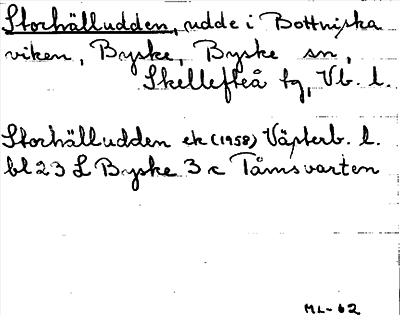 Storhälludden, udde i Bottniska
viken, Byske, Byske sn,
Skellefteå tg, Vb. l.
Storhälludden ek (1958) Västerb. l.
bl 23 L Byske 3 c Tåmsvarten
ML-62